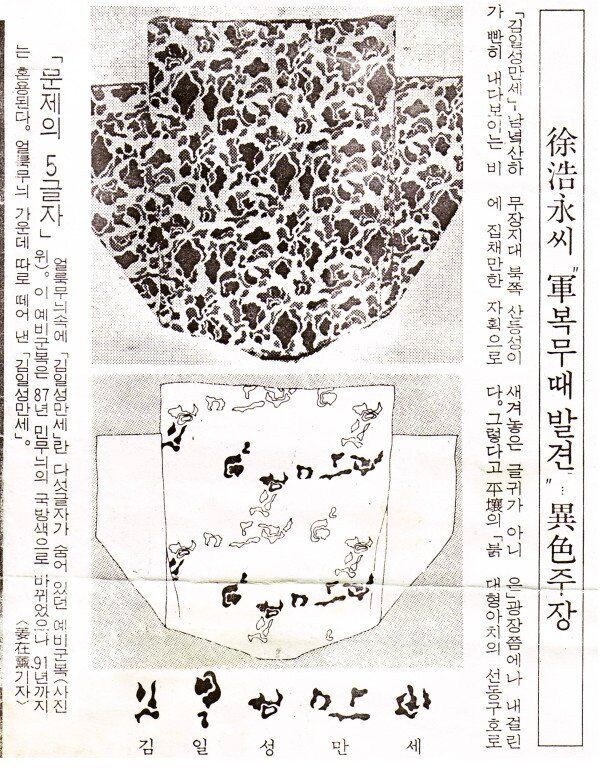 徐浩永씨 "軍복무때 발견"… 異色주장
「김일성만세」. 남녘산하
가 빤히 내다보이는 비
무장지대 북쪽 산등성이
에 집채만한 자획으로
새겨놓은 글귀가 아니
다. 그렇다고 平壤의 「붉
은」광장쯤에나 내걸린
대형아치의 선동구호로
「문제의 5글자」
얼룩무늬속에 「김일성만세」란 다섯글자가 숨어 있던 예비군복〈사진
위〉. 이 예비군복은 87년 민무늬의 국방색으로 바뀌었으나 91년까지
는 혼용된다. 얼룩무늬 가운데 따로 떼어 낸 「김일성만세」.
〈姜在薰기자〉
김 일 성 만 세